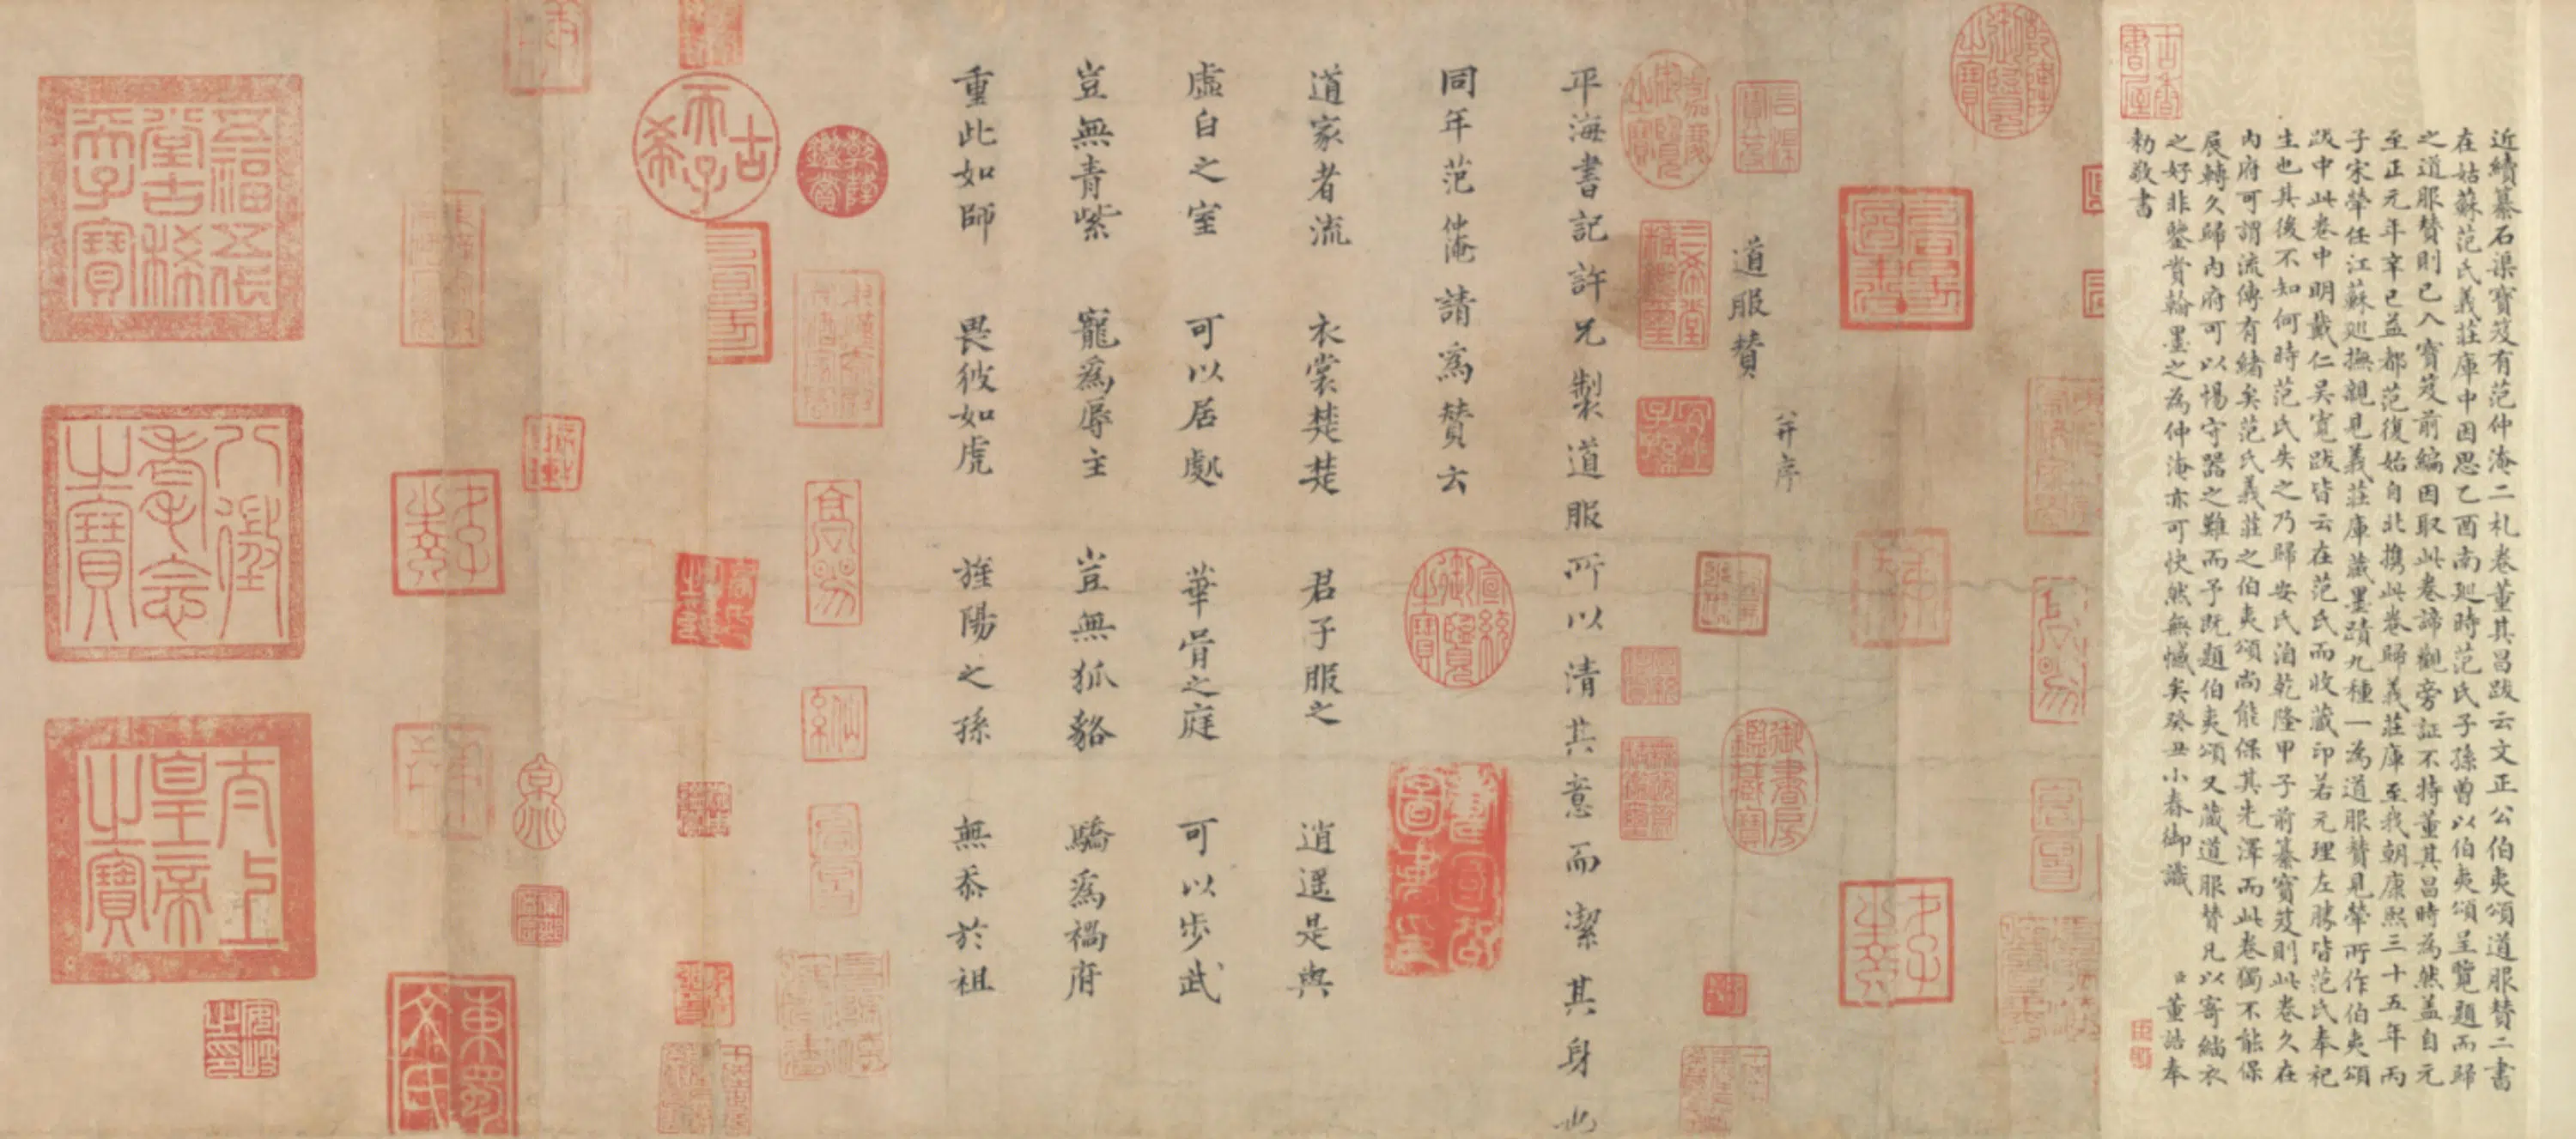 近續纂石渠寶笈有范仲淹二札卷董其昌跋云文正公伯夷頌道服贊二書
在姑蘇范氏義莊庫中因思乙酉南廵時范氏子孫曾以伯夷頌呈覽題而歸
之道服贊則已入寶笈前編因取此卷諦觀旁証不特董其昌時為然蓋自元
至正元年辛巳益都范復始自北携此卷歸義莊庫至我朝康熙三十五年丙
子宋犖任江蘇廵撫親見義莊庫藏墨蹟九種一為道服贊見犖所作伯夷頌
跋中此卷中明戴仁吳寬跋皆云在范氏而收藏印若元理左勝皆范氏奉祀
生也其後不知何時范氏失之乃歸安氏洎乾隆甲子前纂寶笈則此卷久在
內府可謂流傳有緒矣范氏義莊之伯夷頌尚能保其先澤而此卷獨不能保
展轉久歸內府可以惕守器之難而予既題伯夷頌又藏道服贊凡以寄緇衣
之好非鑒賞翰墨之為仲淹亦可快然無憾矣癸丑小春御識 臣董誥奉
勅敬書
乾隆御覽之寶
道服贊 并序
石渠寶笈
御書房鑑藏寶
嘉慶御覽之寶
三希堂精鑑璽
宜子孫
平海書記許兄製道服所以清其意而潔其身也
同年范仲淹請爲贊云
宣統御覽之寶
道家者流 衣裳楚楚 君子服之 逍遥是與
虛白之室 可以居處 華胥之庭 可以步武
豈無青紫 寵爲辱主 豈無狐貉 驕爲禍府
重此如師 畏彼如虎 旌陽之孫 無忝於祖
乾隆鑑賞
古希天子
五福五代堂古稀天子寶
八徵耄念之寶
太上皇帝之寶
安岐之印